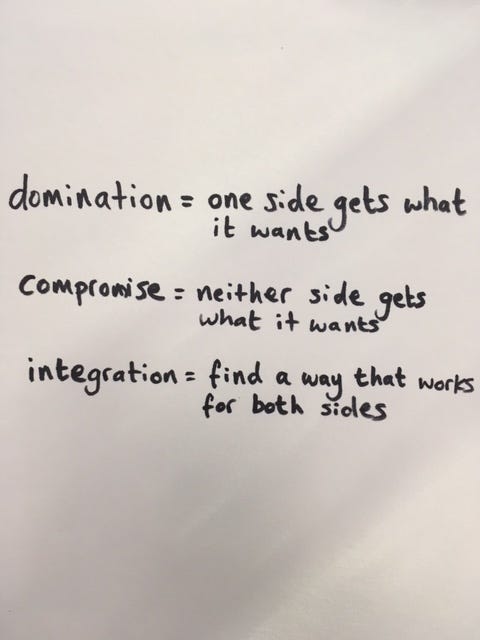 domination = one side gets what
it wants
compromise = neither side gets
what it wants
integration = find a way that works
for both sides